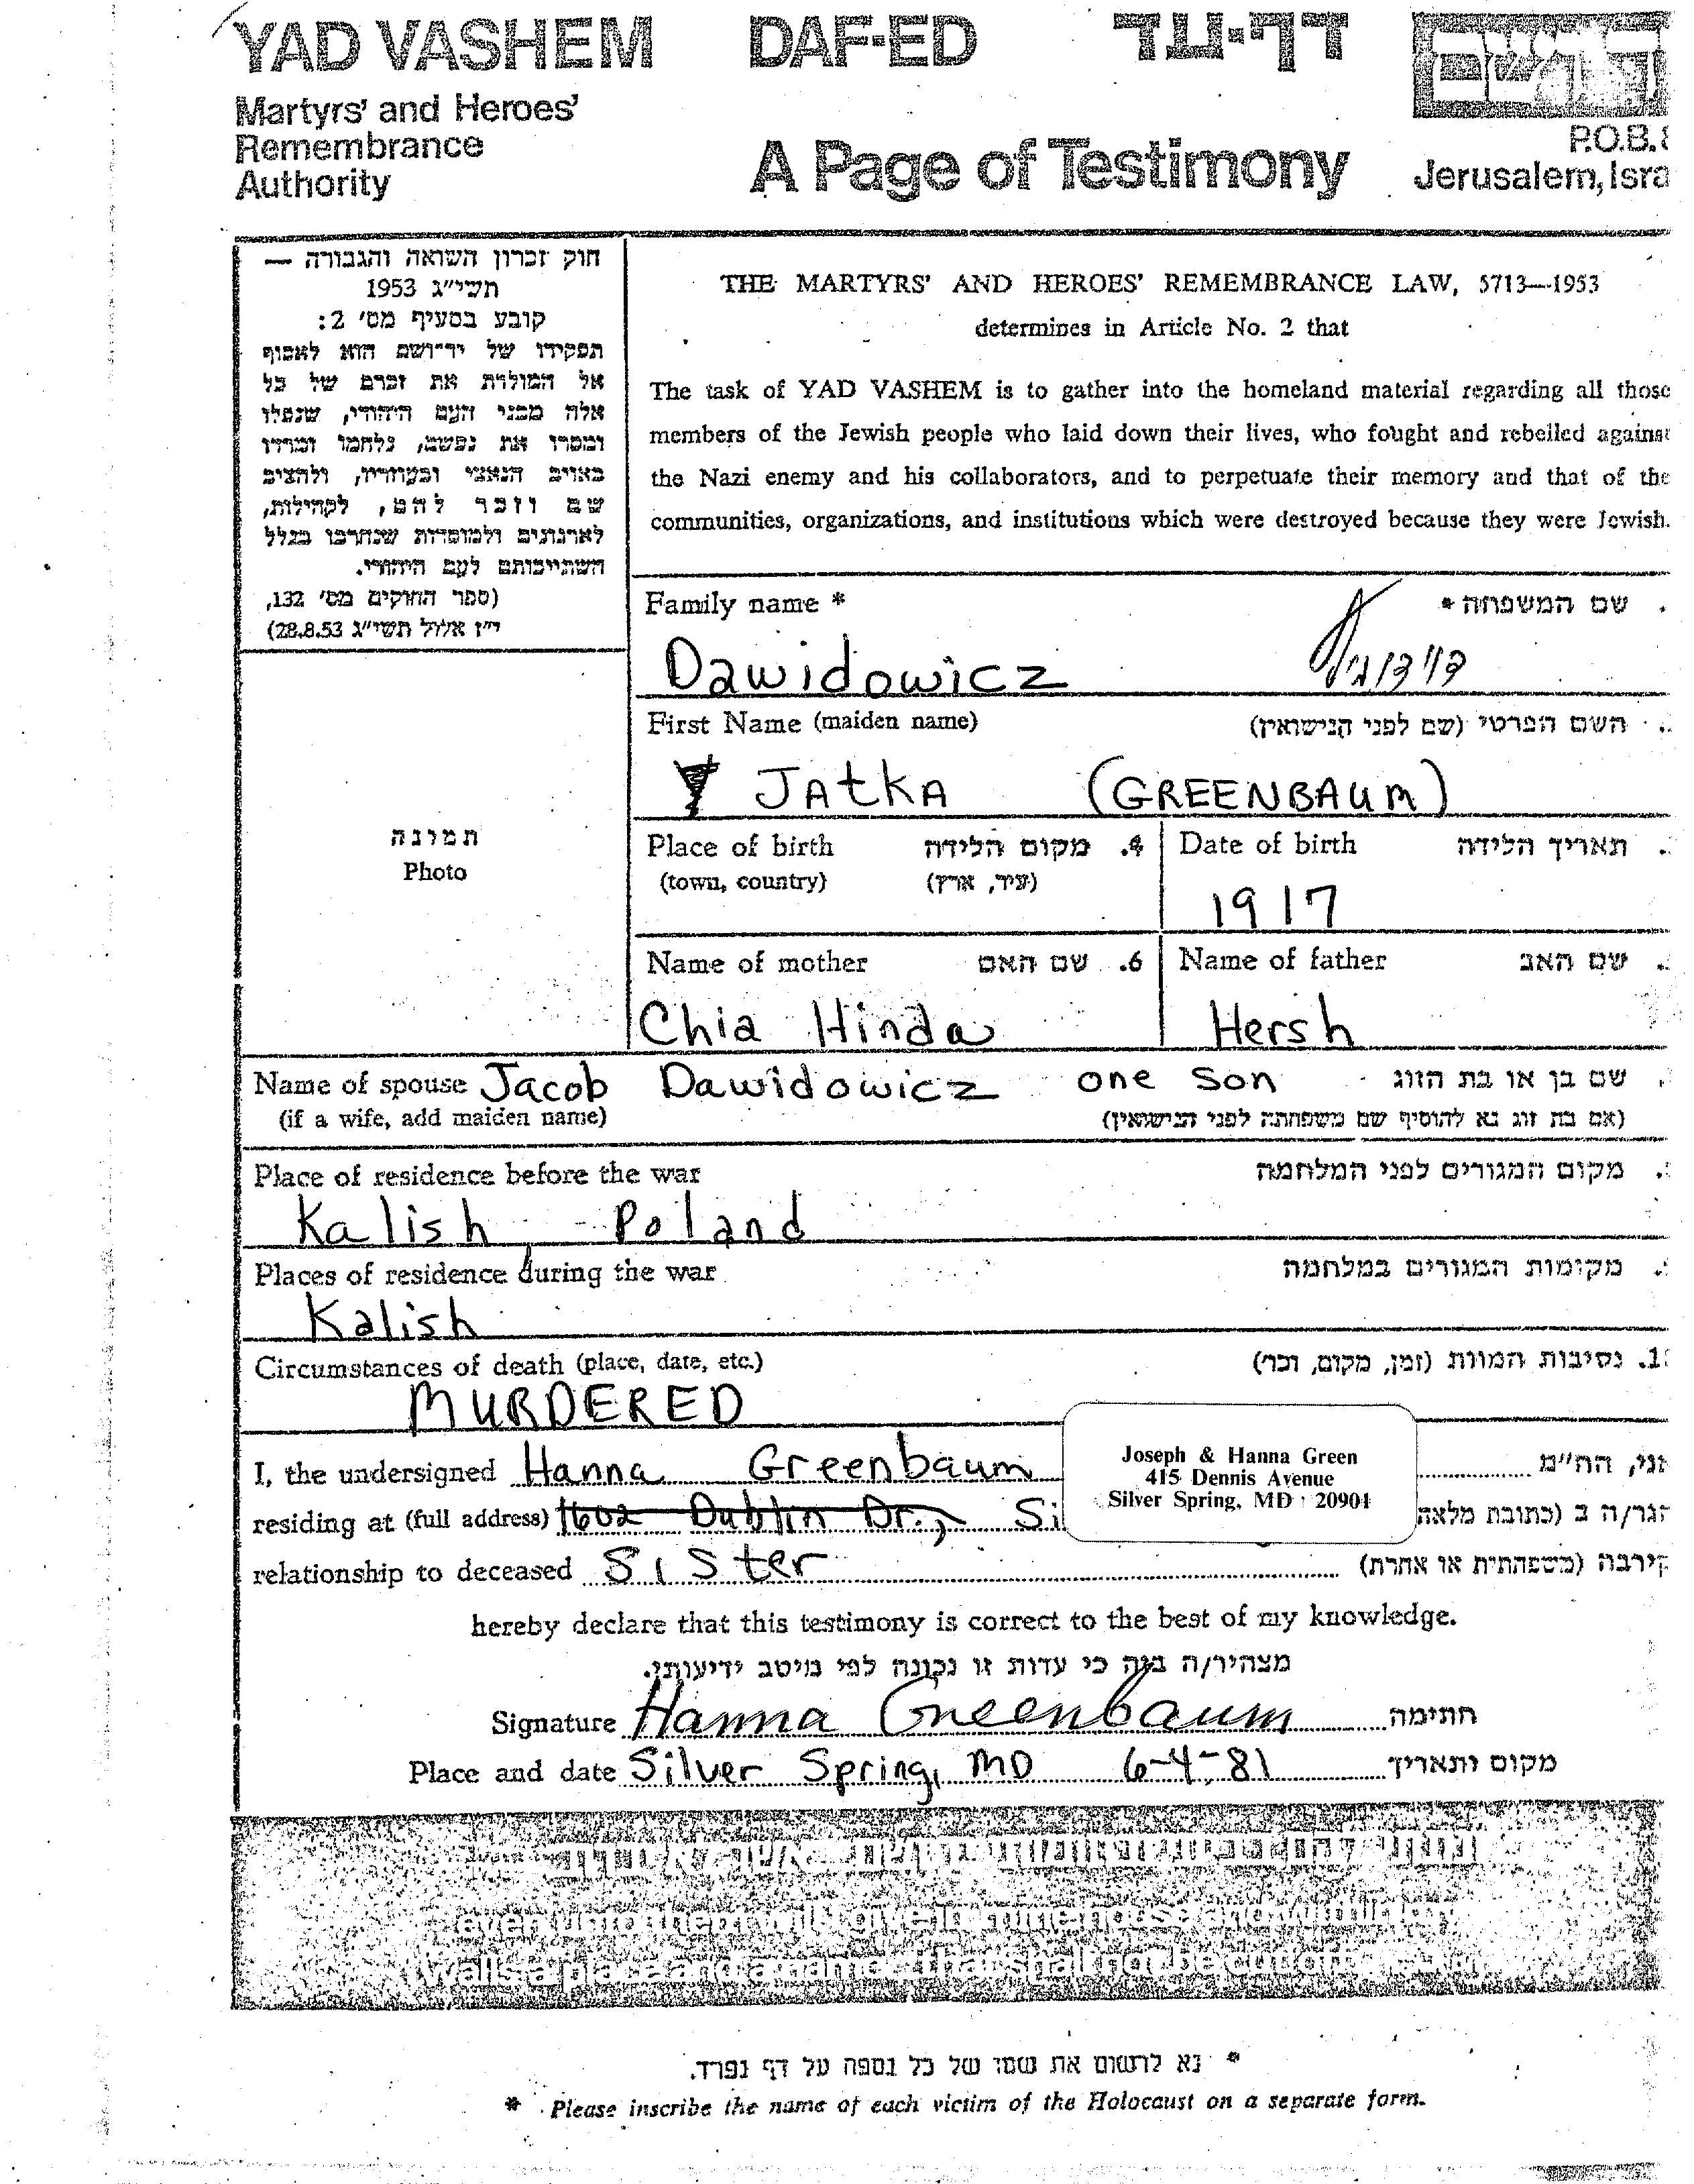 YAD VASHEM DAF-ED דף-עד
Martyrs' and Heroes'
Remembrance
Authority
A Page of Testimony
P.O.B.
Jerusalem, Isra
חוק זכרון השואה והגבורה —
תשי"ג 1953
קובע בסעיף מס' 2:
תפקידו של יד-ושם הוא לאסוף
אל המולדת את זכרם של כל
אלה מבני העם היהודי, שנפלו
ומסרו את נפשם, נלחמו ומרדו
באויב הנאצי ובעוזריו, ולהציב
שם וזכר להם, לקהילות,
לארגונים ולמוסדות שנחרבו בגלל
השתייכותם לעם היהודי.
(ספר החוקים מס' 132,
י"ז אלול תשי"ג 28.8.53)
THE MARTYRS' AND HEROES' REMEMBRANCE LAW, 5713—1953
determines in Article No. 2 that
The task of YAD VASHEM is to gather into the homeland material regarding all those
members of the Jewish people who laid down their lives, who fought and rebelled against
the Nazi enemy and his collaborators, and to perpetuate their memory and that of the
communities, organizations, and institutions which were destroyed because they were Jewish.
Family name * שם המשפחה *
Dawidowicz
First Name (maiden name) השם הפרטי (שם לפני הנישואין)
JAtkA (GREENBAUM)
תמונה
Photo
Place of birth 4. מקום הלידה
(town, country) (עיר, ארץ)
Date of birth תאריך הלידה
1917
Name of mother 6. שם האם
Name of father שם האב
Chia Hinda Hersh
Name of spouse Jacob Dawidowicz one son שם בן או בת הזוג
(if a wife, add maiden name) (אם בת זוג נא להוסיף שם משפחתה לפני הנישואין)
Place of residence before the war מקום המגורים לפני המלחמה
Kalish - Poland
Places of residence during the war מקומות המגורים במלחמה
Kalish
Circumstances of death (place, date, etc.) נסיבות המוות (זמן, מקום, וכו')
MURDERED
I, the undersigned Hanna Greenbaum אני, הח"מ
Joseph & Hanna Green
415 Dennis Avenue
Silver Spring, MD 20901
residing at (full address) 1602 Dublin Dr., Si הגר/ה ב (כתובת מלאה
relationship to deceased Sister קירבה (משפחתית או אחרת)
hereby declare that this testimony is correct to the best of my knowledge.
מצהיר/ה בזה כי עדות זו נכונה לפי מיטב ידיעותי.
Signature Hanna Greenbaum חתימה
Place and date Silver Spring, MD 6-4-81 מקום ותאריך
even unto them will I give in mine house and within my
walls a place and a name... that shall not be cut off
* נא לרשום את שמו של כל נספה על דף נפרד.
* Please inscribe the name of each victim of the Holocaust on a separate form.